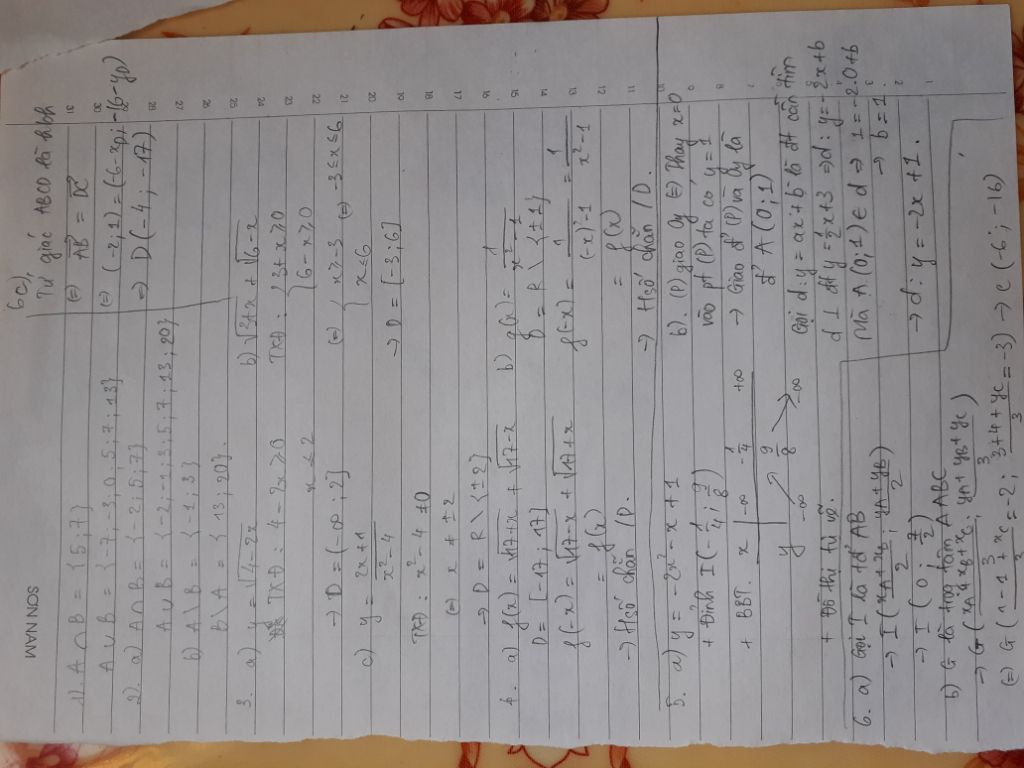 SON NAM
1). A ∩ B = {5; 7}
A ∪ B = {-7; -3; 0; 5; 7; 13}
2). a) A ∩ B = {-2; 5; 7}
A ∪ B = {-2; -1; 3; 5; 7; 13; 20}
b) A \ B = {-1; 3}
B \ A = {13; 20}.
3. a) y = √(4-2x)
TXĐ: 4-2x ≥ 0
x ≤ 2
→ D = (-∞; 2]
b) √(3+x) + √(6-x)
TXĐ: { 3+x ≥ 0
{ 6-x ≥ 0
(=) { x ≥ -3 (=) -3 ≤ x ≤ 6
x ≤ 6
→ D = [-3; 6]
c) y = (2x+1)/(x²-4)
TXĐ: x²-4 ≠ 0
(=) x ≠ ±2
→ D = R \ {±2}
4. a) f(x) = √(17+x) + √(17-x)
D = [-17; 17]
f(-x) = √(17-x) + √(17+x)
= f(x)
→ H/số chẵn /D.
b) g(x) = 1/(x²-1)
D = R \ {±1}
f(-x) = 1/((-x)²-1) = 1/(x²-1)
= f(x)
→ H/số chẵn /D.
5. a) y = -2x² - x + 1
+ Đỉnh I (-1/4; 9/8)
+ BBT. x | -∞ -1/4 +∞
y | -∞ 9/8 -∞
+ Đồ thị tự vẽ.
b). (P) giao Oy (=) Thay x=0
vào pt (P) ta có y = 1
→ Giao đ' (P) và Oy là
đ' A (0; 1)
Gọi d: y = ax + b là đt cần tìm
d ⊥ đt y = 1/2 x + 3 → d: y = -2x + b
Mà A (0; 1) ∈ d → 1 = -2.0 + b
→ b = 1.
→ d: y = -2x + 1.
6. a) Gọi I là tđ' AB
→ I ((xA + xB)/2; (yA + yB)/2)
→ I (0; 7/2)
b) G là trọng tâm Δ ABC
→ G ((xA + xB + xC)/3; (yA + yB + yC)/3)
(=) G ((1-1+xC)/3 = -2; (3+4+yC)/3 = -3) → C (-6; -16)
6c),
Tứ giác ABCD là hbh
(=) AB = DC
(=) (-2; 1) = (-6-xD; -16-yD)
→ D (-4; -17)
31
30
29
28
27
26
25
24
23
22
21
20
19
18
17
16
15
14
13
12
11
10
9
8
7
3
2
1